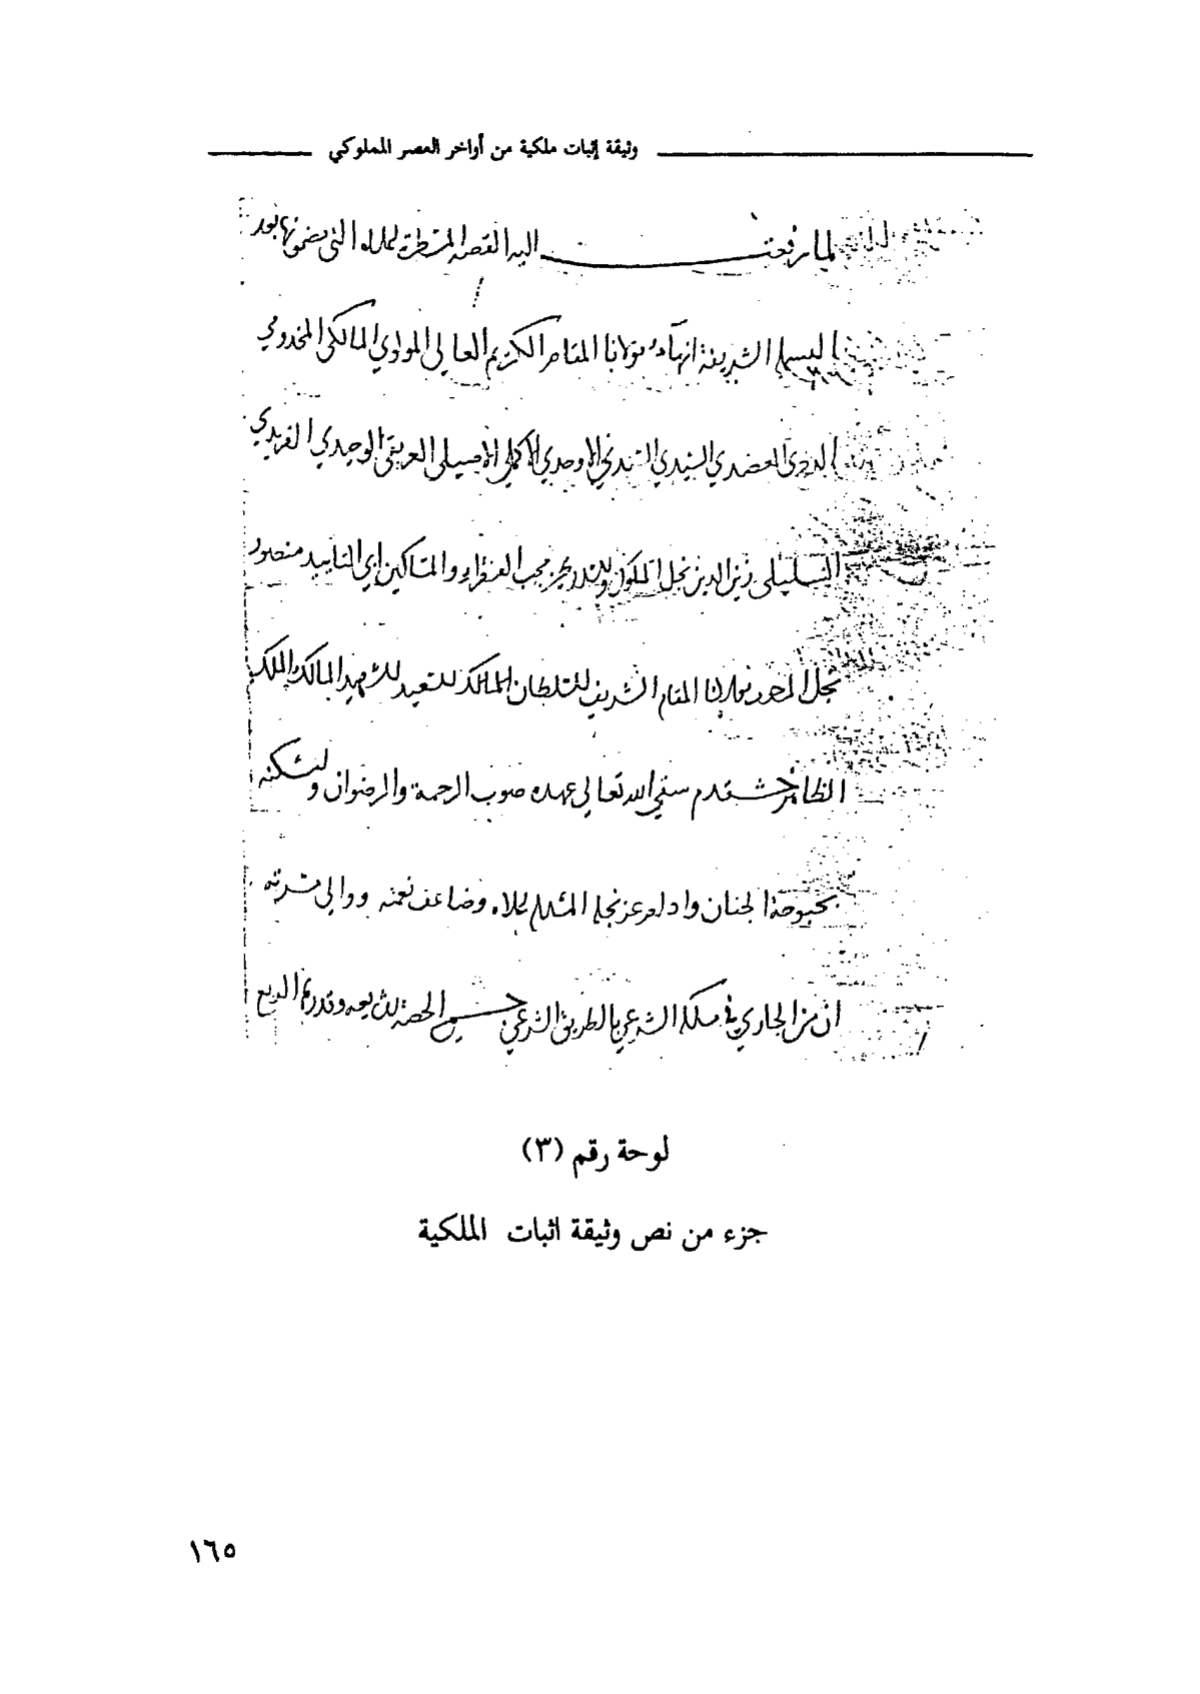 وثيقة إثبات ملكية من أواخر العصر المملوكي
لما رفعت اليه القصة المسطرة اعلاه التي مضمونها بعد
البسملة الشريفة انهاه مولانا المقام الكريم العالي المولوي المالكي المخدومي
العضدي السيدي السندي الاوحدي الاكملي الاصيلي العريقي الوحيدي الفريدي
السليلي زين الدين نجل الملوك والسلاطين محب الفقراء والمساكين ابي التاييد منصور
نجل المرحوم مولانا المقام الشريف السلطان المالك السعيد الشهيد المالك الملك
الظاهر خشقدم سقي الله تعالى عهده صوب الرحمة والرضوان واسكنه
بحبوحة الجنان وادام عز نجله المشار اليه وضاعف نعمته ووالى مسرته
ان من الجاري في ملكه الشرعي بالطريق الشرعي جميع الحصة الشايعه وقدرها الربع
لوحة رقم (٣)
جزء من نص وثيقة اثبات الملكية
١٦٥